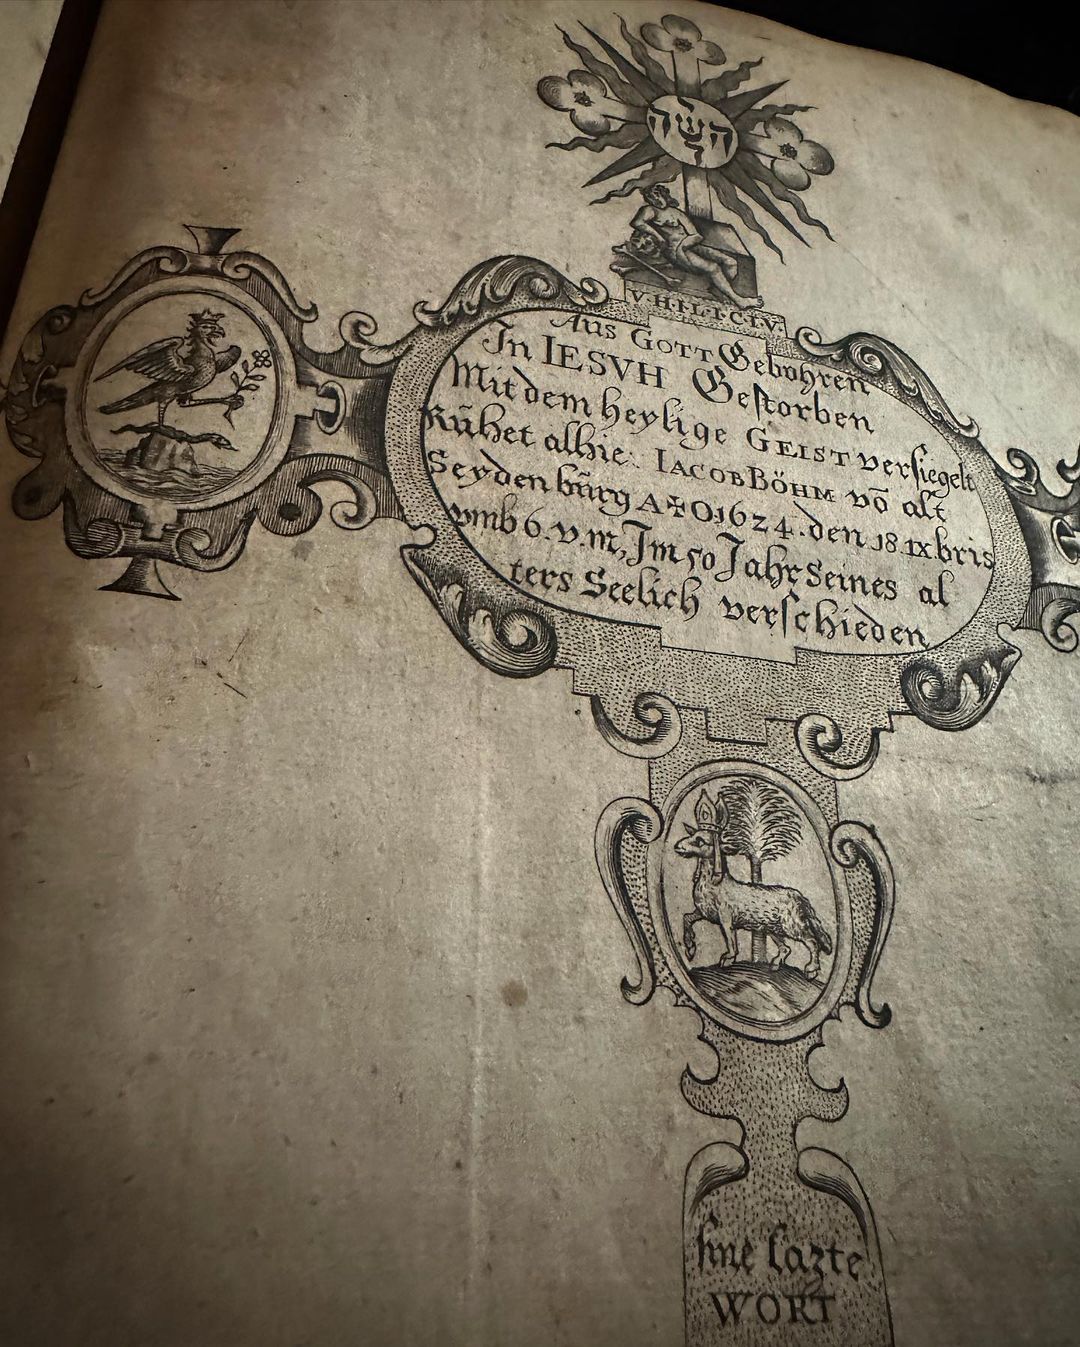 השה
V·H·IL·I·C·I·V.
Aus GOTT Gebohren
In IESVH Gestorben
Mit dem heylige GEIST versiegelt
Rŭhet alhie: IACOB BÖHM vō alt
Seydenbŭrg A‡O 1624. den 18. IXbris
vmb 6. v. m, Im 50 Jahr Seines al
ters Seelich verschieden
sine lazte
WORT